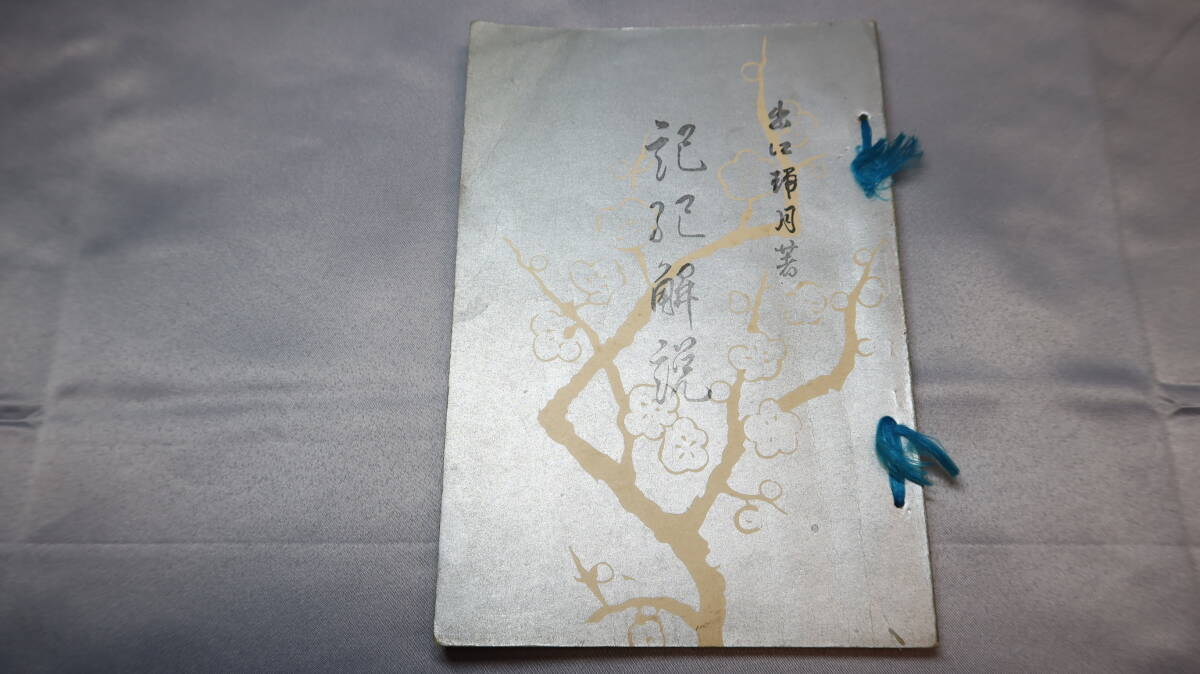 出口瑞月著
記紀解説